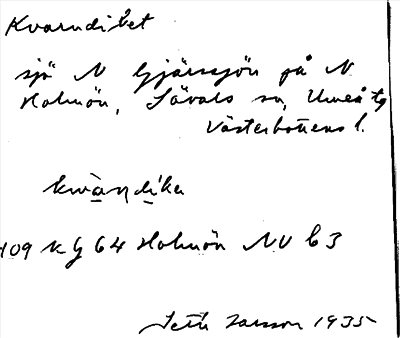 Kvarndiket
sjö N Gjärssjön på N
Holmön, Sävars sn, Umeå tg
Västerbottens l.
kwà̱ṇdi̱ka
109 Kg 64 Holmön NV b3
Seth Larsson 1935